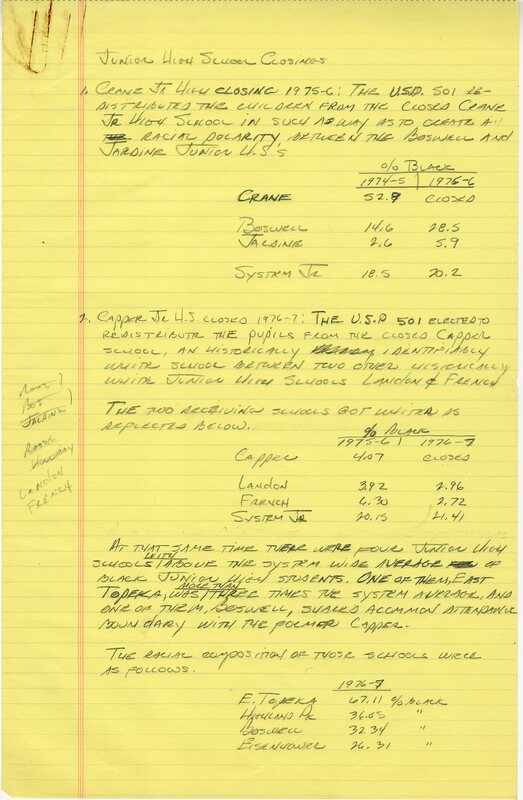 Junior High School Closings
1. Crane Jr High closing 1975-6: The U.S.D. 501 re-
distributed the children from the closed Crane
Jr High School in such a way as to create a
racial polarity between the Boswell and
Jardine Junior H.S.'s
% Black
1974-5 1975-6
Crane 52.9 closed
Boswell 14.6 28.5
Jardine 2.6 5.9
System Jr 18.5 20.2
2. Capper Jr H.S. closed 1976-7: The U.S.D 501 elected to
redistribute the pupils from the closed Capper
school, an historically identifiably
white school between two other historically
white Junior High Schools Landon & French
The two receiving schools got whiter as
reflected below.
% Black
1975-6 1976-7
Capper 4.07 closed
Landon 3.92 2.96
French 6.30 2.72
System Jr 20.15 21.41
Bos
Jardine
Holliday
Landon
French
At that same time there were four Junior High
schools with above the system wide average of
black Junior High students. One of them, East
Topeka, was more than three times the system average, and
one of them, Boswell, shared a common attendance
boundary with the former Capper.
The racial composition of those schools were
as follows.
1976-7
E. Topeka 67.11 % Black
Highland Pk 36.05 "
Boswell 32.34 "
Eisenhower 26.31 "